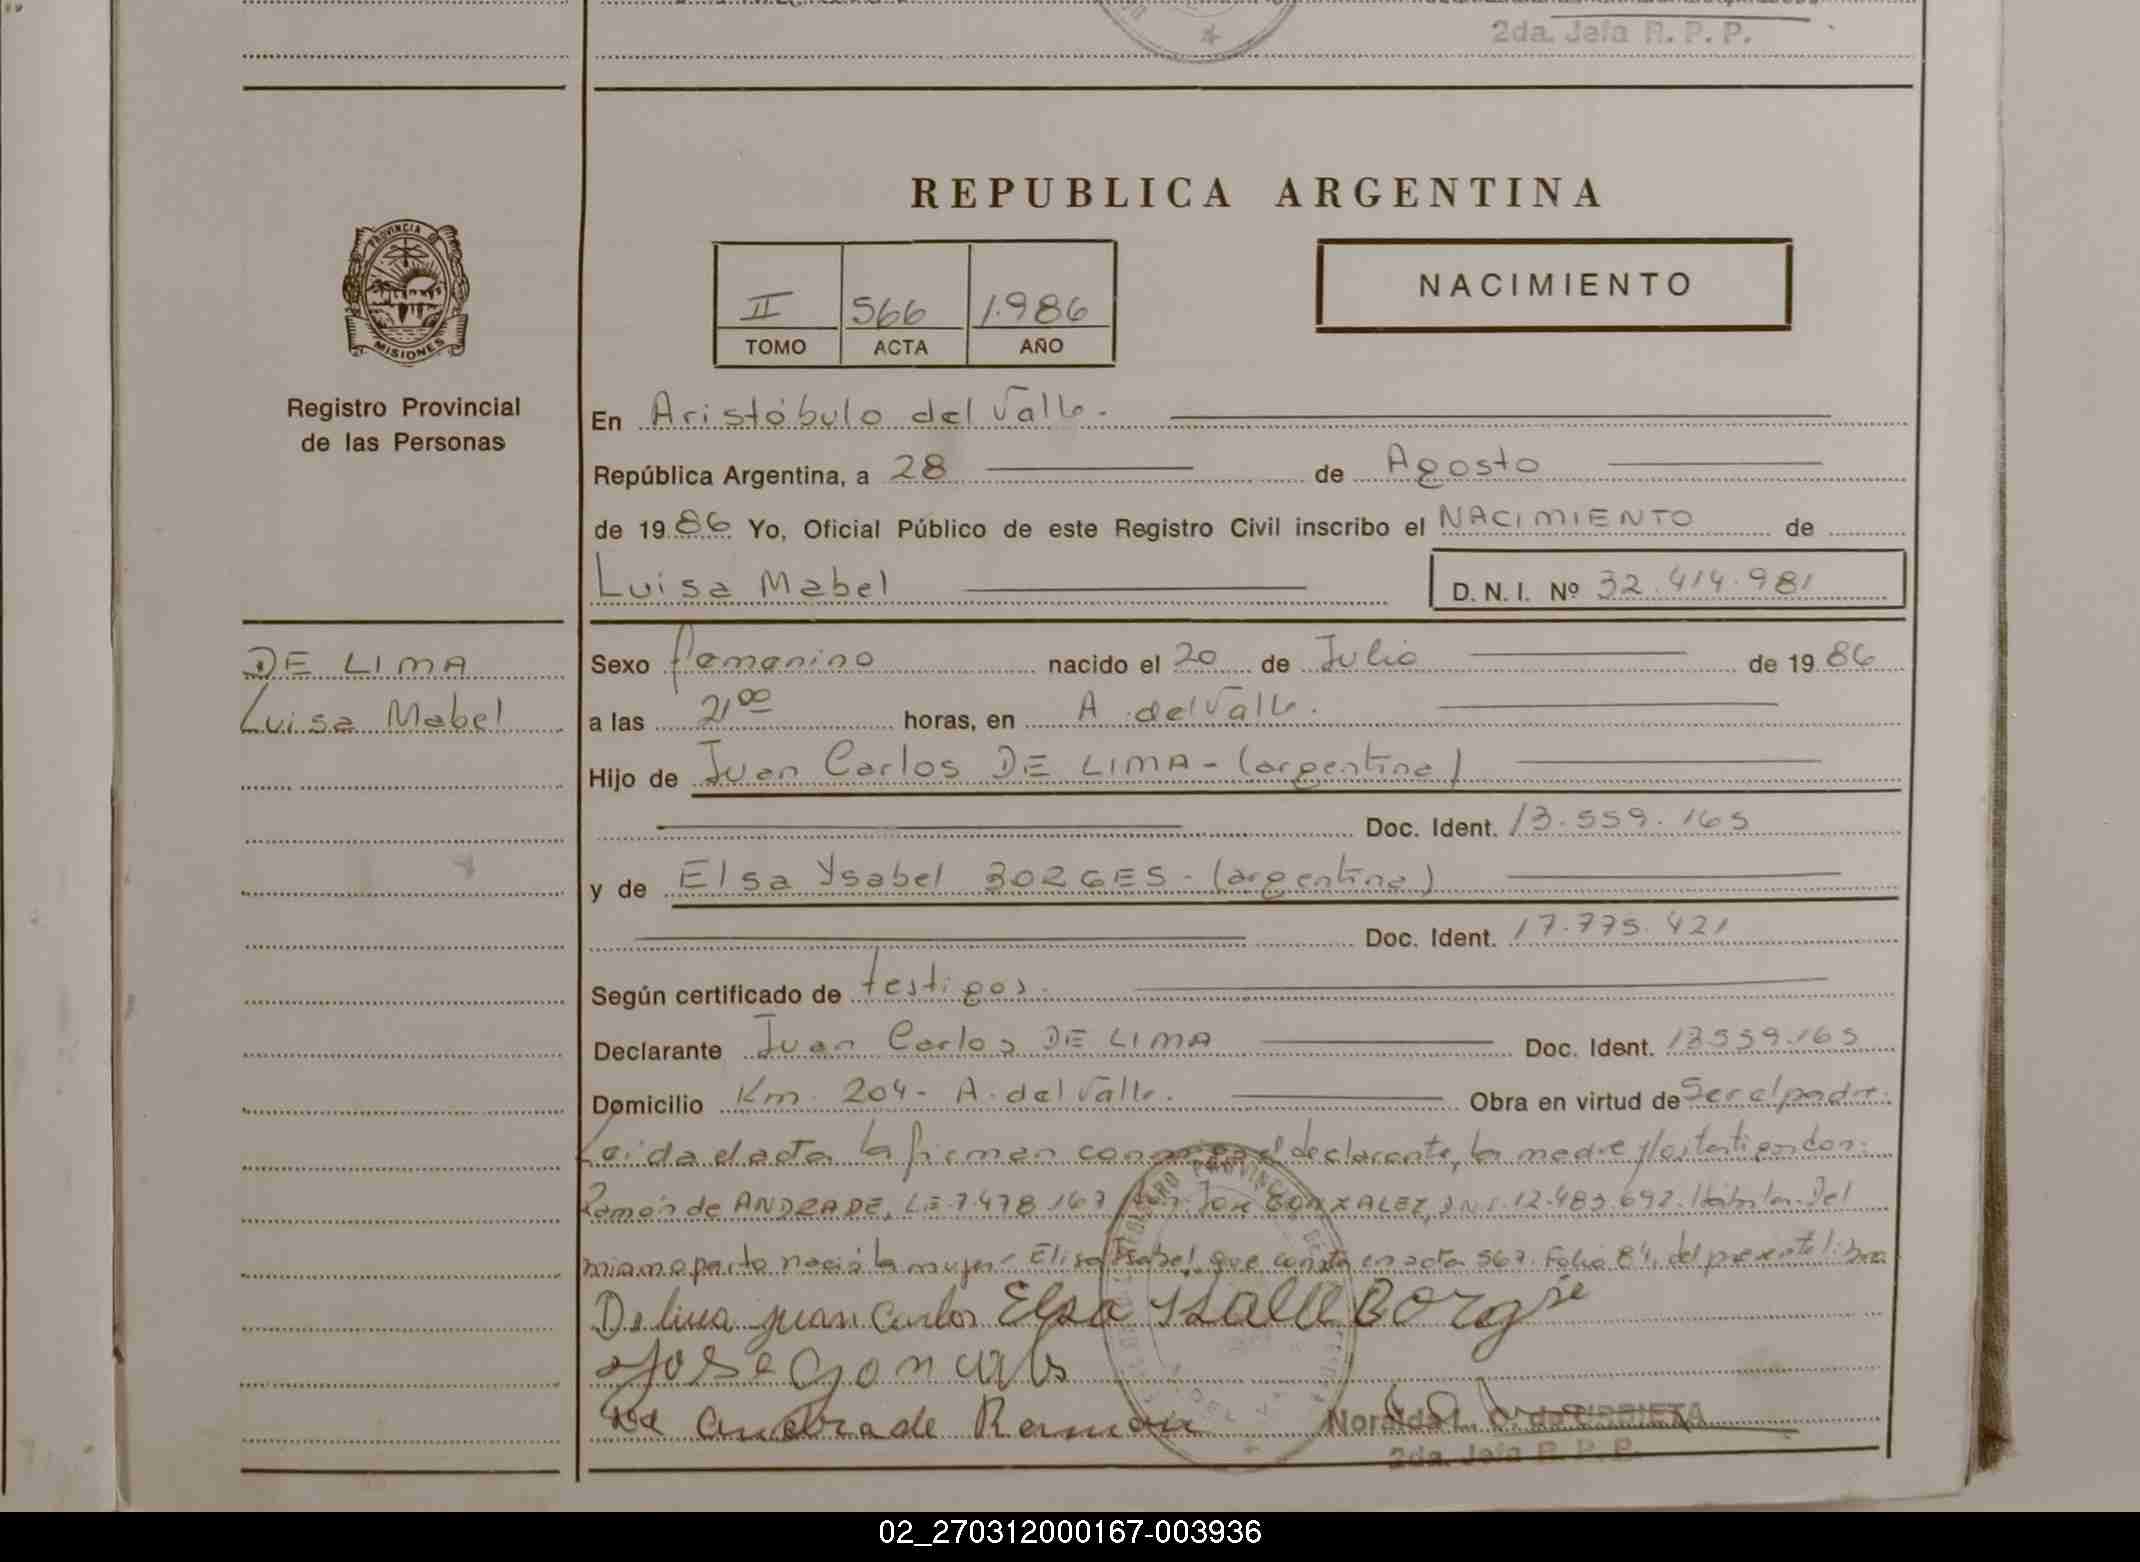 2da. Jefa R. P. P.
REPUBLICA ARGENTINA
PROVINCIA DE
MISIONES
II 566 1.986
TOMO ACTA AÑO
NACIMIENTO
Registro Provincial
de las Personas
En Aristóbulo del Valle.
República Argentina, a 28 de Agosto
de 1986 Yo, Oficial Público de este Registro Civil inscribo el NACIMIENTO de
Luisa Mabel D. N. I. Nº 32.414.981
DE LIMA
Luisa Mabel
Sexo femenino nacido el 20 de Julio de 1986
a las 21,00 horas, en A. del Valle.
Hijo de Juan Carlos DE LIMA - (argentina)
Doc. Ident. 13.559.165
y de Elsa Ysabel BORGES - (argentina)
Doc. Ident. 17.775.421
Según certificado de testigos.
Declarante Juan Carlos DE LIMA Doc. Ident. 13559.165
Domicilio Km. 204 - A. del Valle. Obra en virtud de Ser el padre.
Leida el acta la firman el declarante, la madre y los testigos don:
Ramón de ANDRADE, L.E. 7.478.167 José GONZALEZ, D.N.I. 12.483.692. Del
mismo parto nació la mujer Elisa Isabel, que consta en acta 567. Folio 84, del presente libro
De lima juan Carlos Elsa
Jose
Andrade Ramon
2da. Jefa R. P. P.
02_270312000167-003936